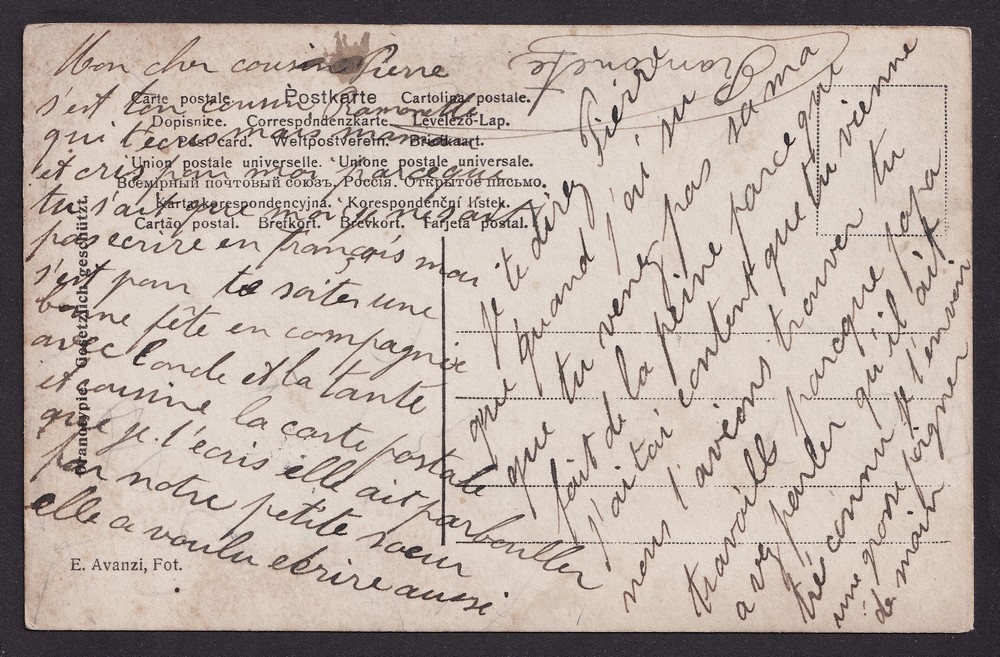 Mon cher cousin Pierre
s'est ton cousin Ramonette
qui t'ecris mais maman
et cris par moi parceque
tu s'ait que moi je ne sait
pas ecrire en français mai
s'est pour te soiter une
bonne fête en compagnie
avec l'oncle et la tante
et cousine la carte postale
que je t'écris elle ait parbouller
par notre petite soeur
elle a voulu ecrire aussi
Carte postale. Postkarte Cartolina postale.
Dopisnice. Correspondenzkarte. Levelező-Lap.
Post card. Weltpostverein. Briefkaart.
Union postale universelle. Unione postale universale.
Всемирный почтовый союзъ. Россія. Открытое письмо.
Karta korespondencyjna. Korespondenční listek.
Cartão postal. Brefkort. Brevkort. Tarjeta postal.
Granotypie. Gesetzlich geschützt.
E. Avanzi, Fot.
Ramonete
Je te direz Pierre
que quand j'ai su
que tu venez pas sa ma
fait de la peine parceque
j'aitai content que tu vienne
nous l'avions trouver tu
travaille parceque papa
avez parler qu'il ait
très connu je t'envoi
une grosse poigner
de main